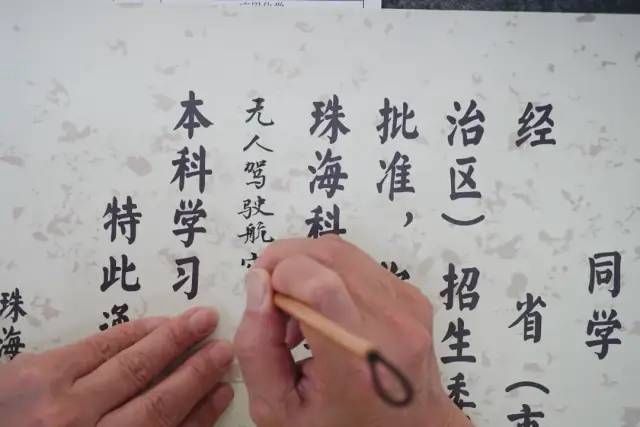 同学
经 省（市
治区）招生委
批准，
珠海科
无人驾驶航
本科学习
特此
珠海